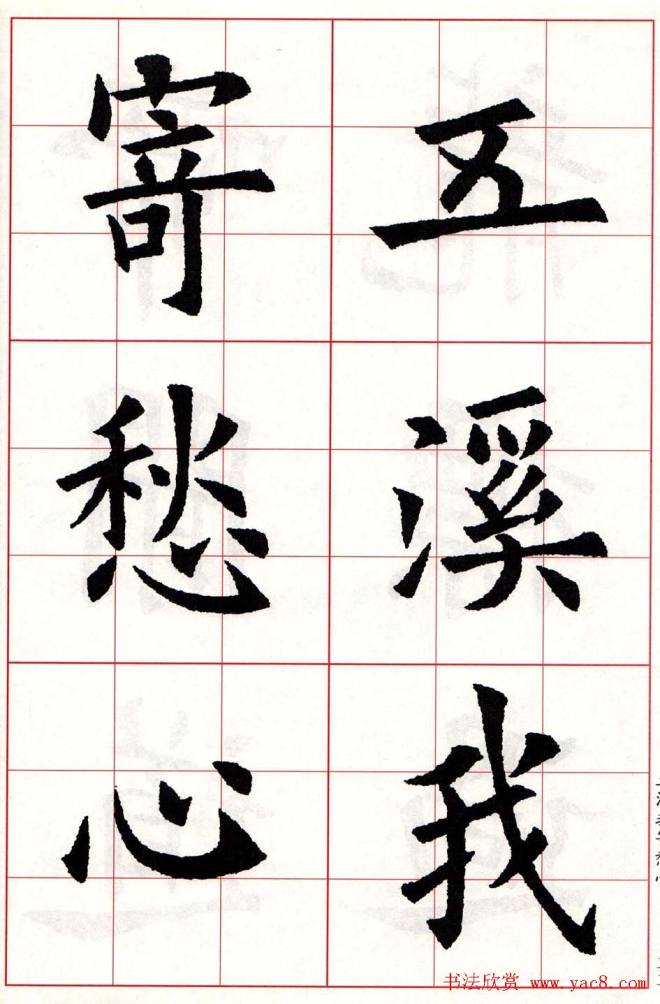 五溪我
寄愁心
书法欣赏 www.yac8.com